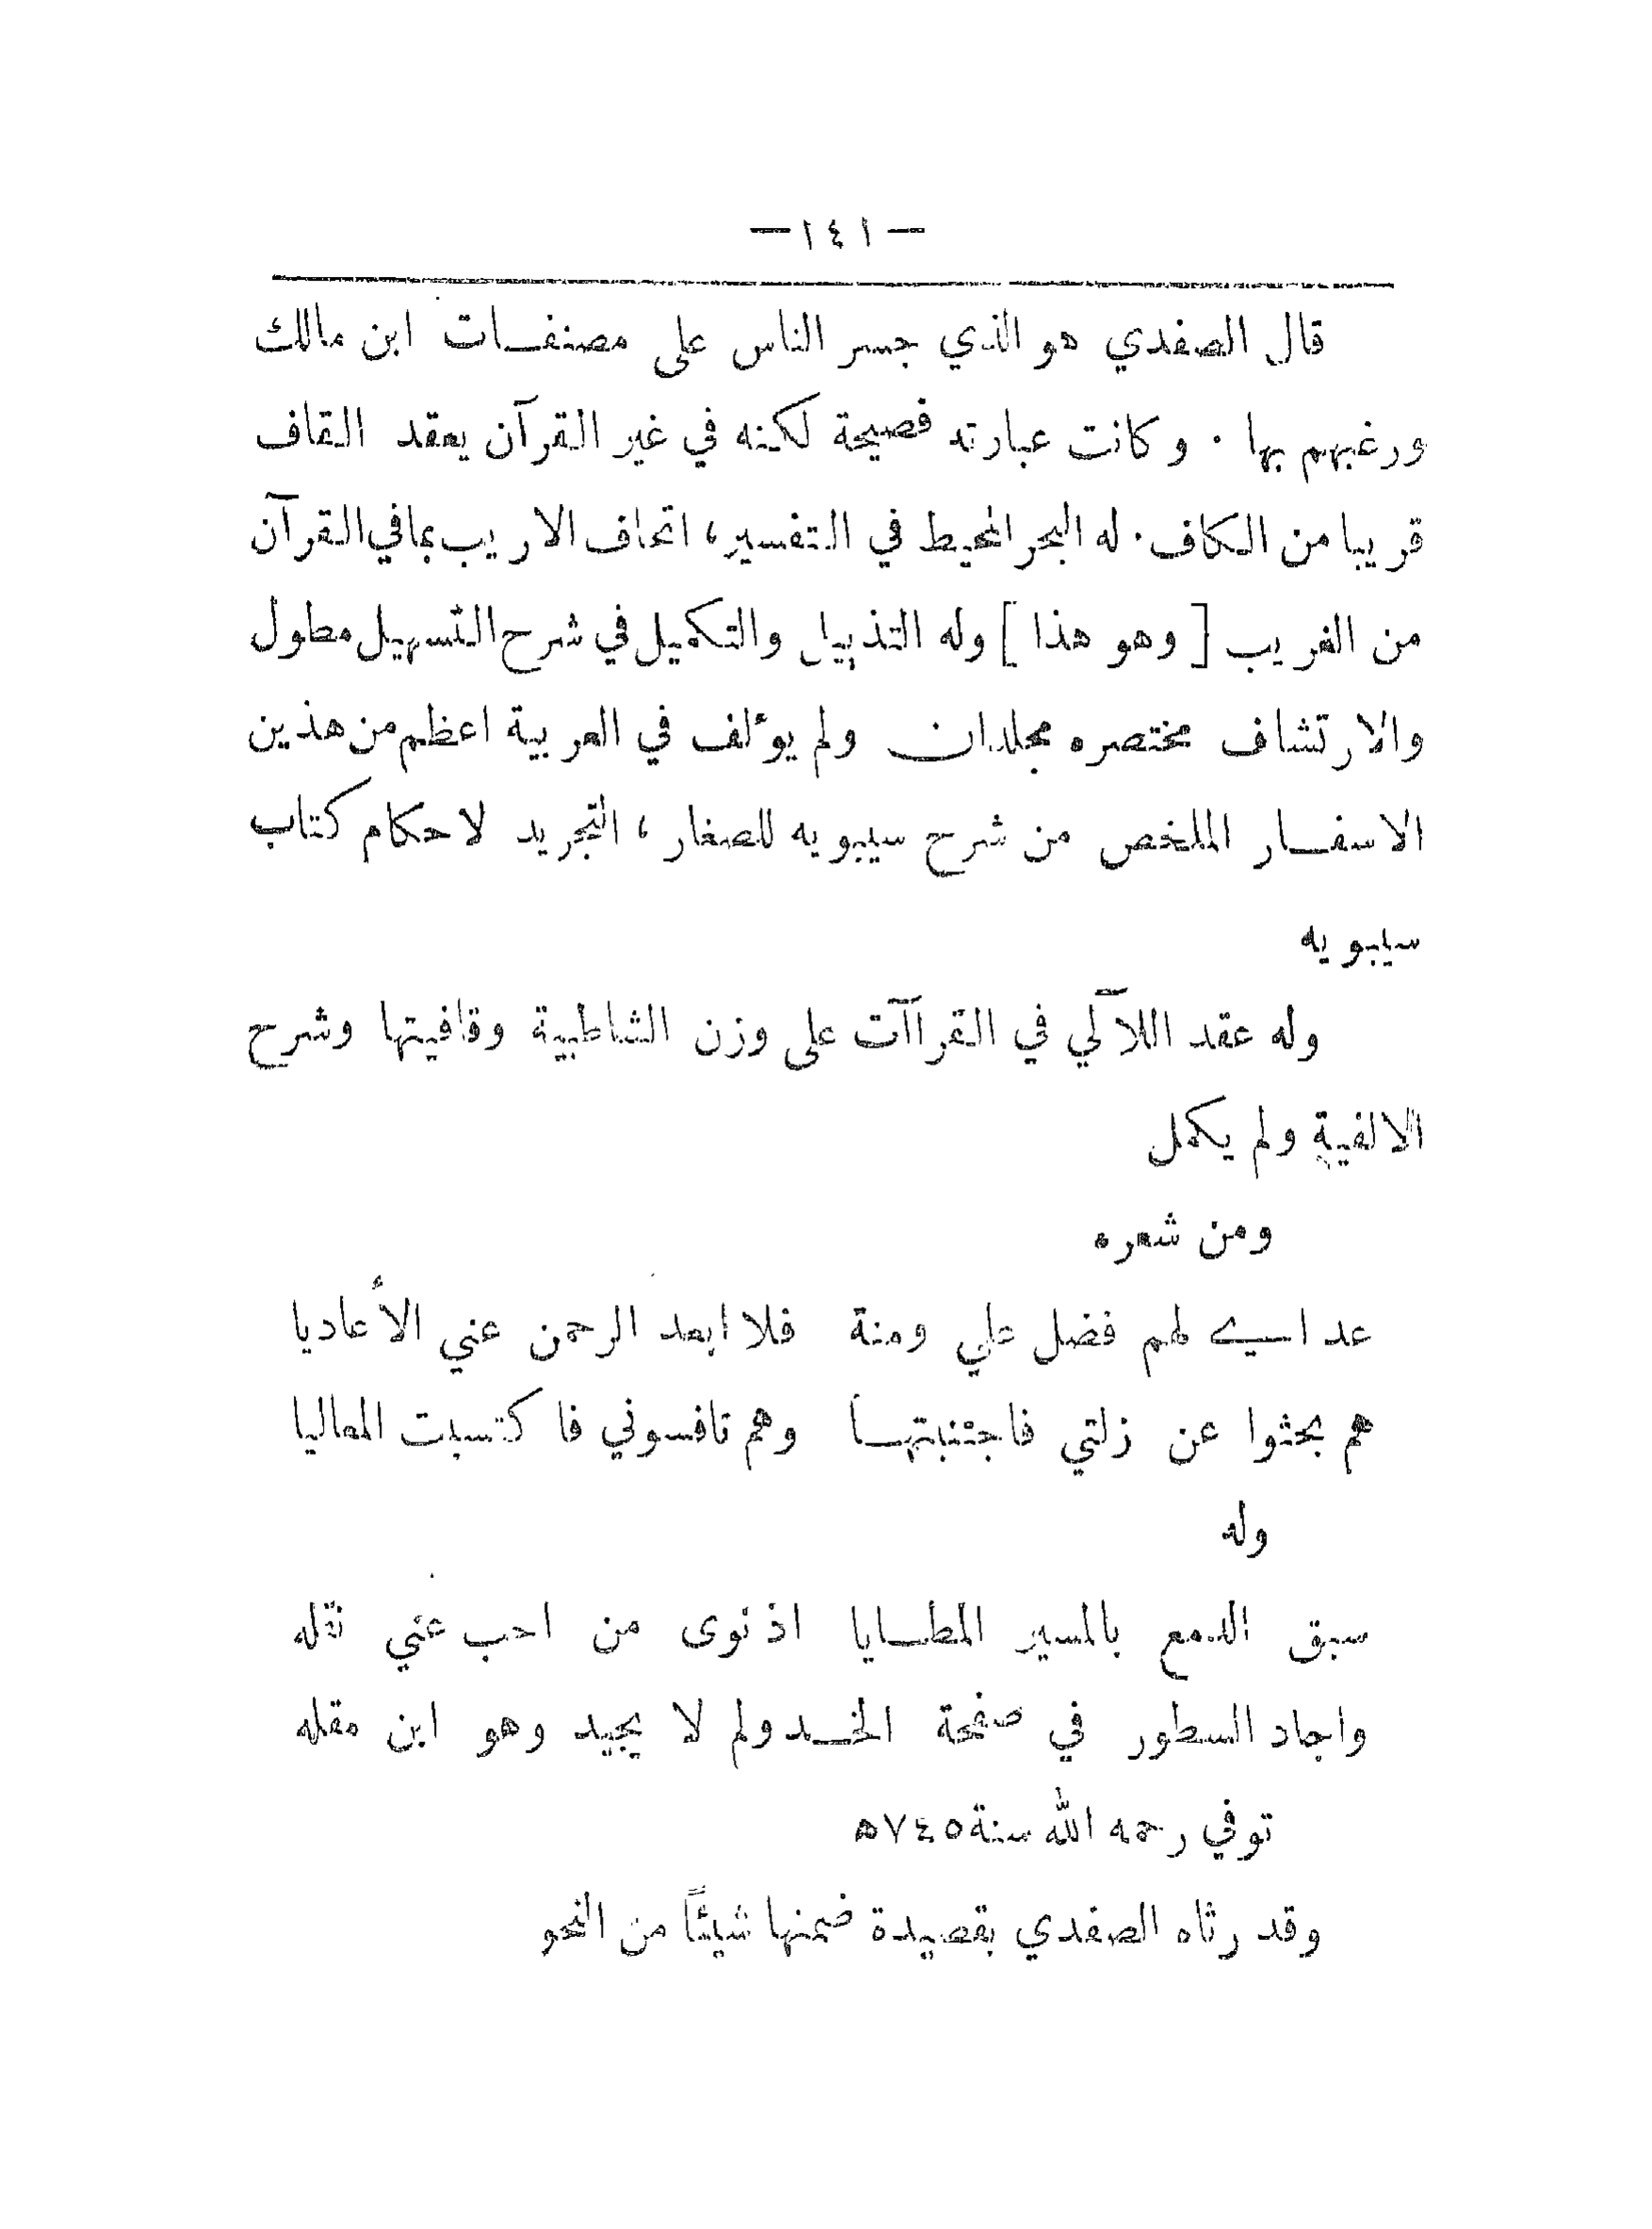 — ١٤١ —
قال الصفدي هو الذي جسر الناس على مصنفات ابن مالك
ورغبهم بها . وكانت عبارته فصيحة لكنه في غير القرآن يعقد القاف
قريبا من الكاف . له البحر المحيط في التفسير ، اتحاف الاريب بما في القرآن
من الغريب [ وهو هذا ] وله التذييل والتكميل في شرح التسهيل مطول
والارتشاف مختصره مجلدان ولم يؤلف في العربية اعظم من هذين
الاسفار الملخص من شرح سيبويه للصغار ، التجريد لاحكام كتاب
سيبويه
وله عقد اللآلي في القراآت على وزن الشاطبية وقافيتها وشرح
الالفية ولم يكمل
ومن شعره
عداي لهم فضل علي ومنة فلا ابعد الرحمن عني الأعاديا
هم بحثوا عن زلتي فاجتنبتها وهم نافسوني فاكتسبت المعاليا
وله
سبق الدمع بالمسير المطايا اذ نوى من احب عني نقله
واجاد السطور في صفحة الخد ولم لا يجيد وهو ابن مقله
توفي رحمه الله سنة ٧٤٥ ه
وقد رثاه الصفدي بقصيدة ضمنها شيئاً من النحو